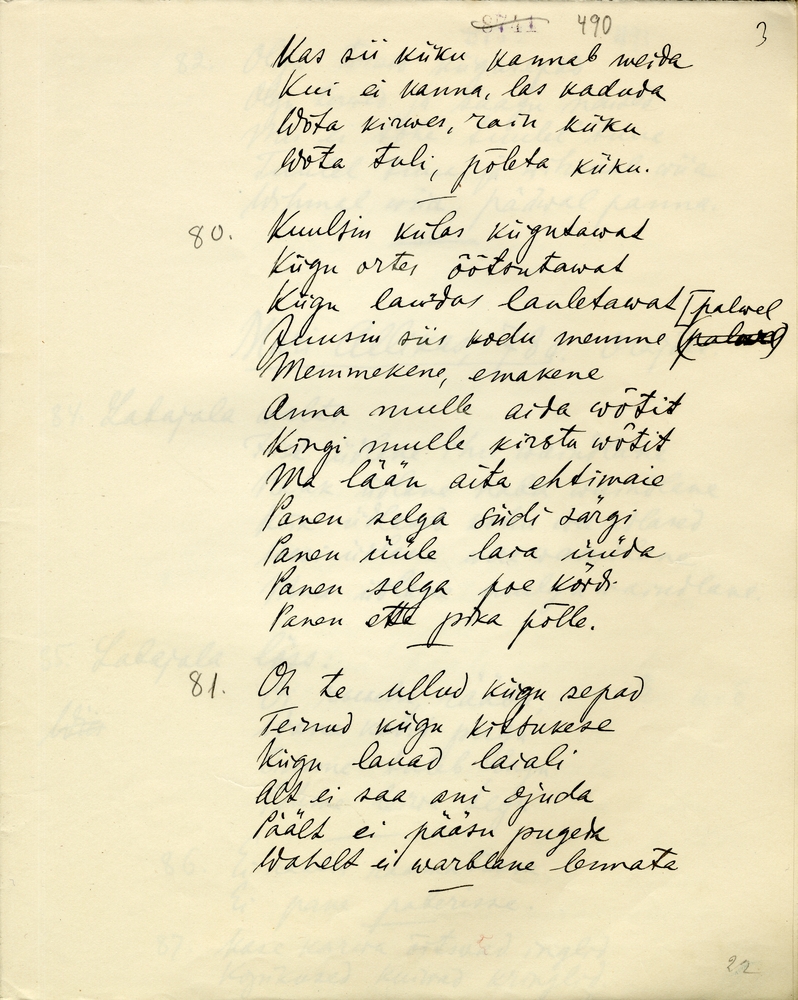 8741 490 3
Kas sii kiiku kannab meida
Kui ei kanna, las kaduda
Wõta kirwes, raiu kiiku
Wõta tuli, põleta kiiku.
80. Kuulsin külas kiigutawat
Kiigu ortes öötsutawat
Kiigu laudas lauletawat
Juusin siis kodu memme [palwel
Memmekene, emakene
Anna mulle aida wõtit
Kingi mulle kirstu wõtit
Ma lään aita ehtimaie
Panen selga siidi särgi
Panen üüle laia üüda
Panen selga poe kördi
Panen ette pika põlle.
81. Oh te ullud kiigu sepad
Teinud kiigu kitsukese
Kiigu lauad laiali
Alt ei saa ani ojuda
Päält ei pääsu pugeda
Wahelt ei warblane lennata
22